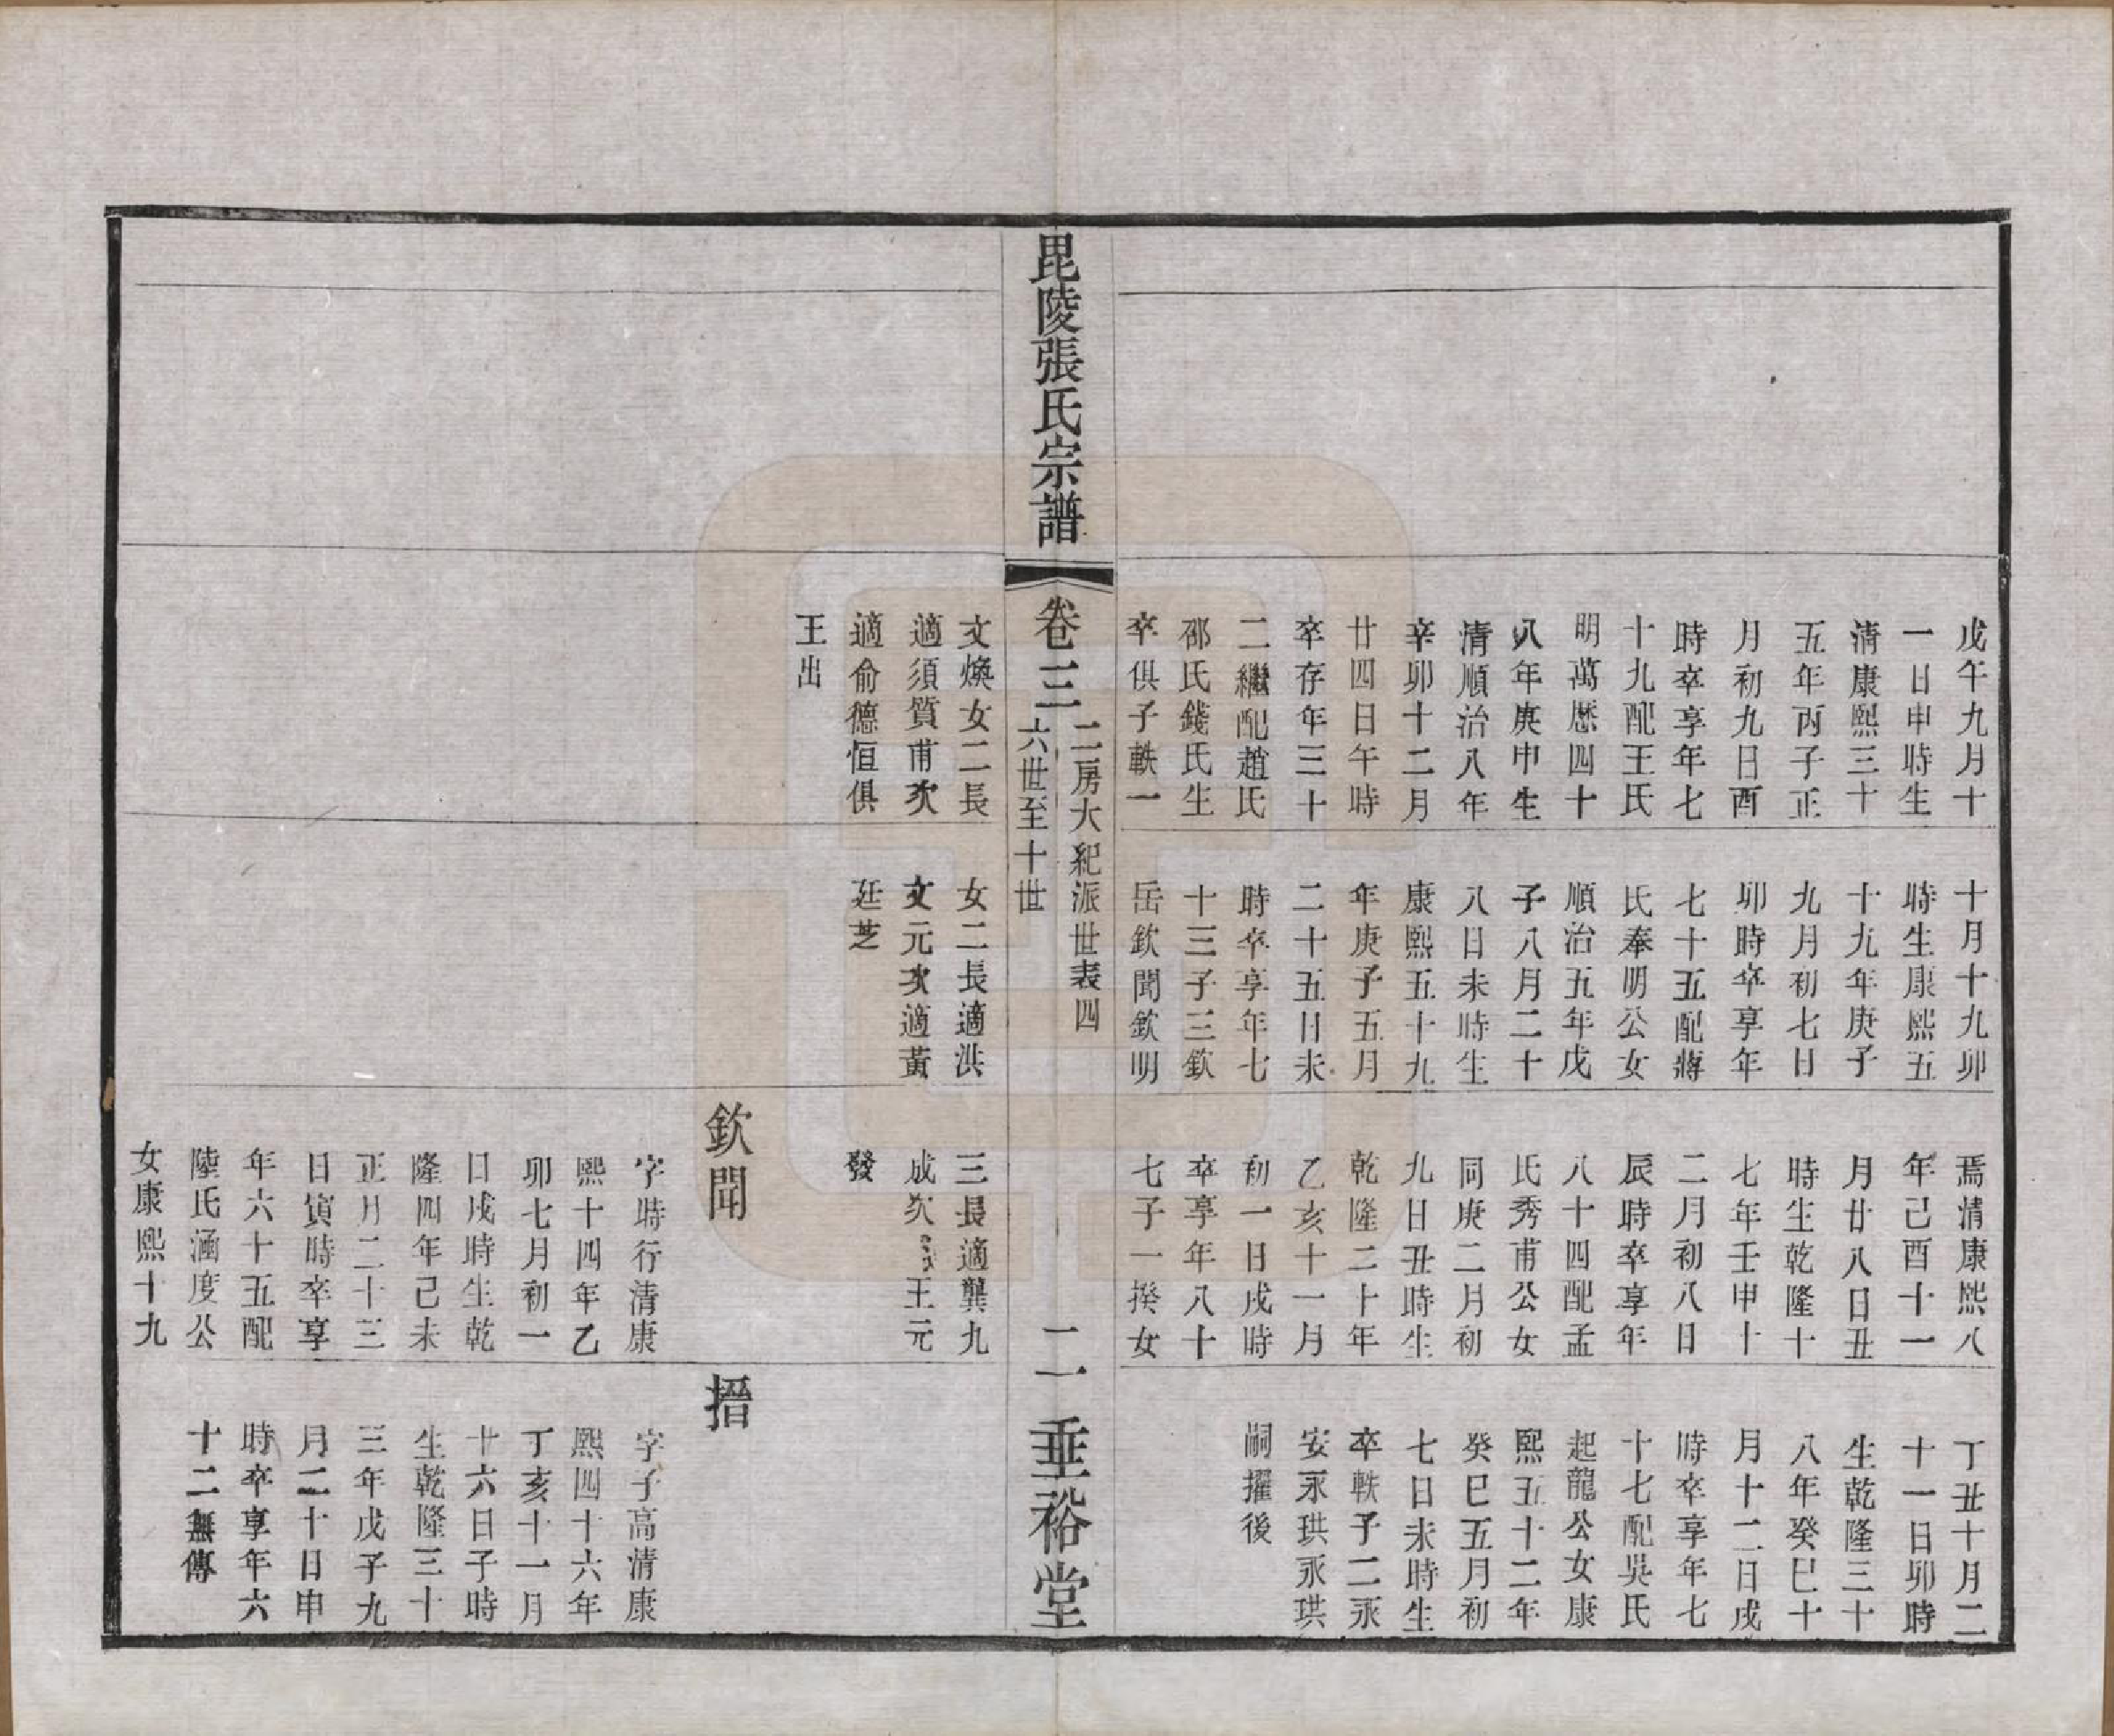 戊午九月十
一日申時生
清康熙三十
五年丙子正
月初九日酉
時卒享年七
十九配王氏
明萬厯四十
八年庚申生
清順治八年
辛卯十二月
廿四日午時
卒存年三十
二繼配趙氏
邵氏錢氏生
卒俱子軼一
十月十九卯
時生康熙五
十九年庚子
九月初七日
卯時卒享年
七十五配蔣
氏奉明公女
順治五年戊
子八月二十
八日未時生
康熙五十九
年庚子五月
二十五日未
時卒享年七
十三子三欽
岳欽聞欽明
焉清康熙八
年己酉十一
月廿八日丑
時生乾隆十
七年壬申十
二月初八日
辰時卒享年
八十四配孟
氏秀甫公女
同庚二月初
九日丑時生
乾隆二十年
乙亥十一月
初一日戌時
卒享年八十
七子一揆女
丁丑十月二
十一日卯時
生乾隆三十
八年癸巳十
月十二日戌
時卒享年七
十七配吳氏
起龍公女康
熙五十二年
癸巳五月初
七日未時生
卒軼子二永
安永珙永珙
嗣擢後
毘陵張氏宗譜
卷三
二房大紀派世表四
六世至十世
二一
垂裕堂
文煥女二長
適須質甫次
適俞德恒俱
王出
女二長適洪
文元次適黃
廷芝
三長適龔九
成次 王元
發
欽聞
字時行清康
熙十四年乙
卯七月初一
日戌時生乾
隆四年己未
正月二十三
日寅時卒享
年六十五配
陸氏涵度公
女康熙十九
搢
字子高清康
熙四十六年
丁亥十一月
廿六日子時
生乾隆三十
三年戊子九
月二十日申
時卒享年六
十二無傳